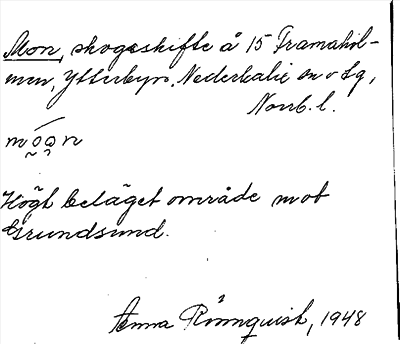 Mon, skogsskifte å 15 Framahol-
men, Ytterbyn, Nederkalix sn o lg,
Norrb. l.
mo̰o̰n
Högt beläget område mot
Grundsund.
Anna Rönnquist, 1948